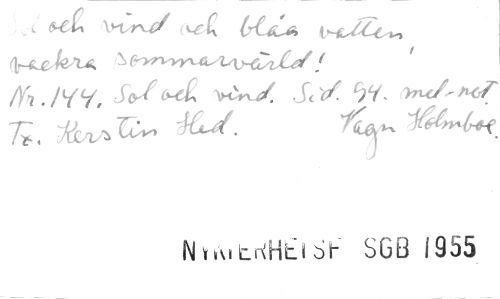 Sol och vind och blåa vatten,
vackra sommarvärld!
Nr. 144. Sol och vind. Sid. 94. mel-not.
Tx. Kerstin Hed. Vagn Holmboe.
NYKTERHETSF SGB 1955